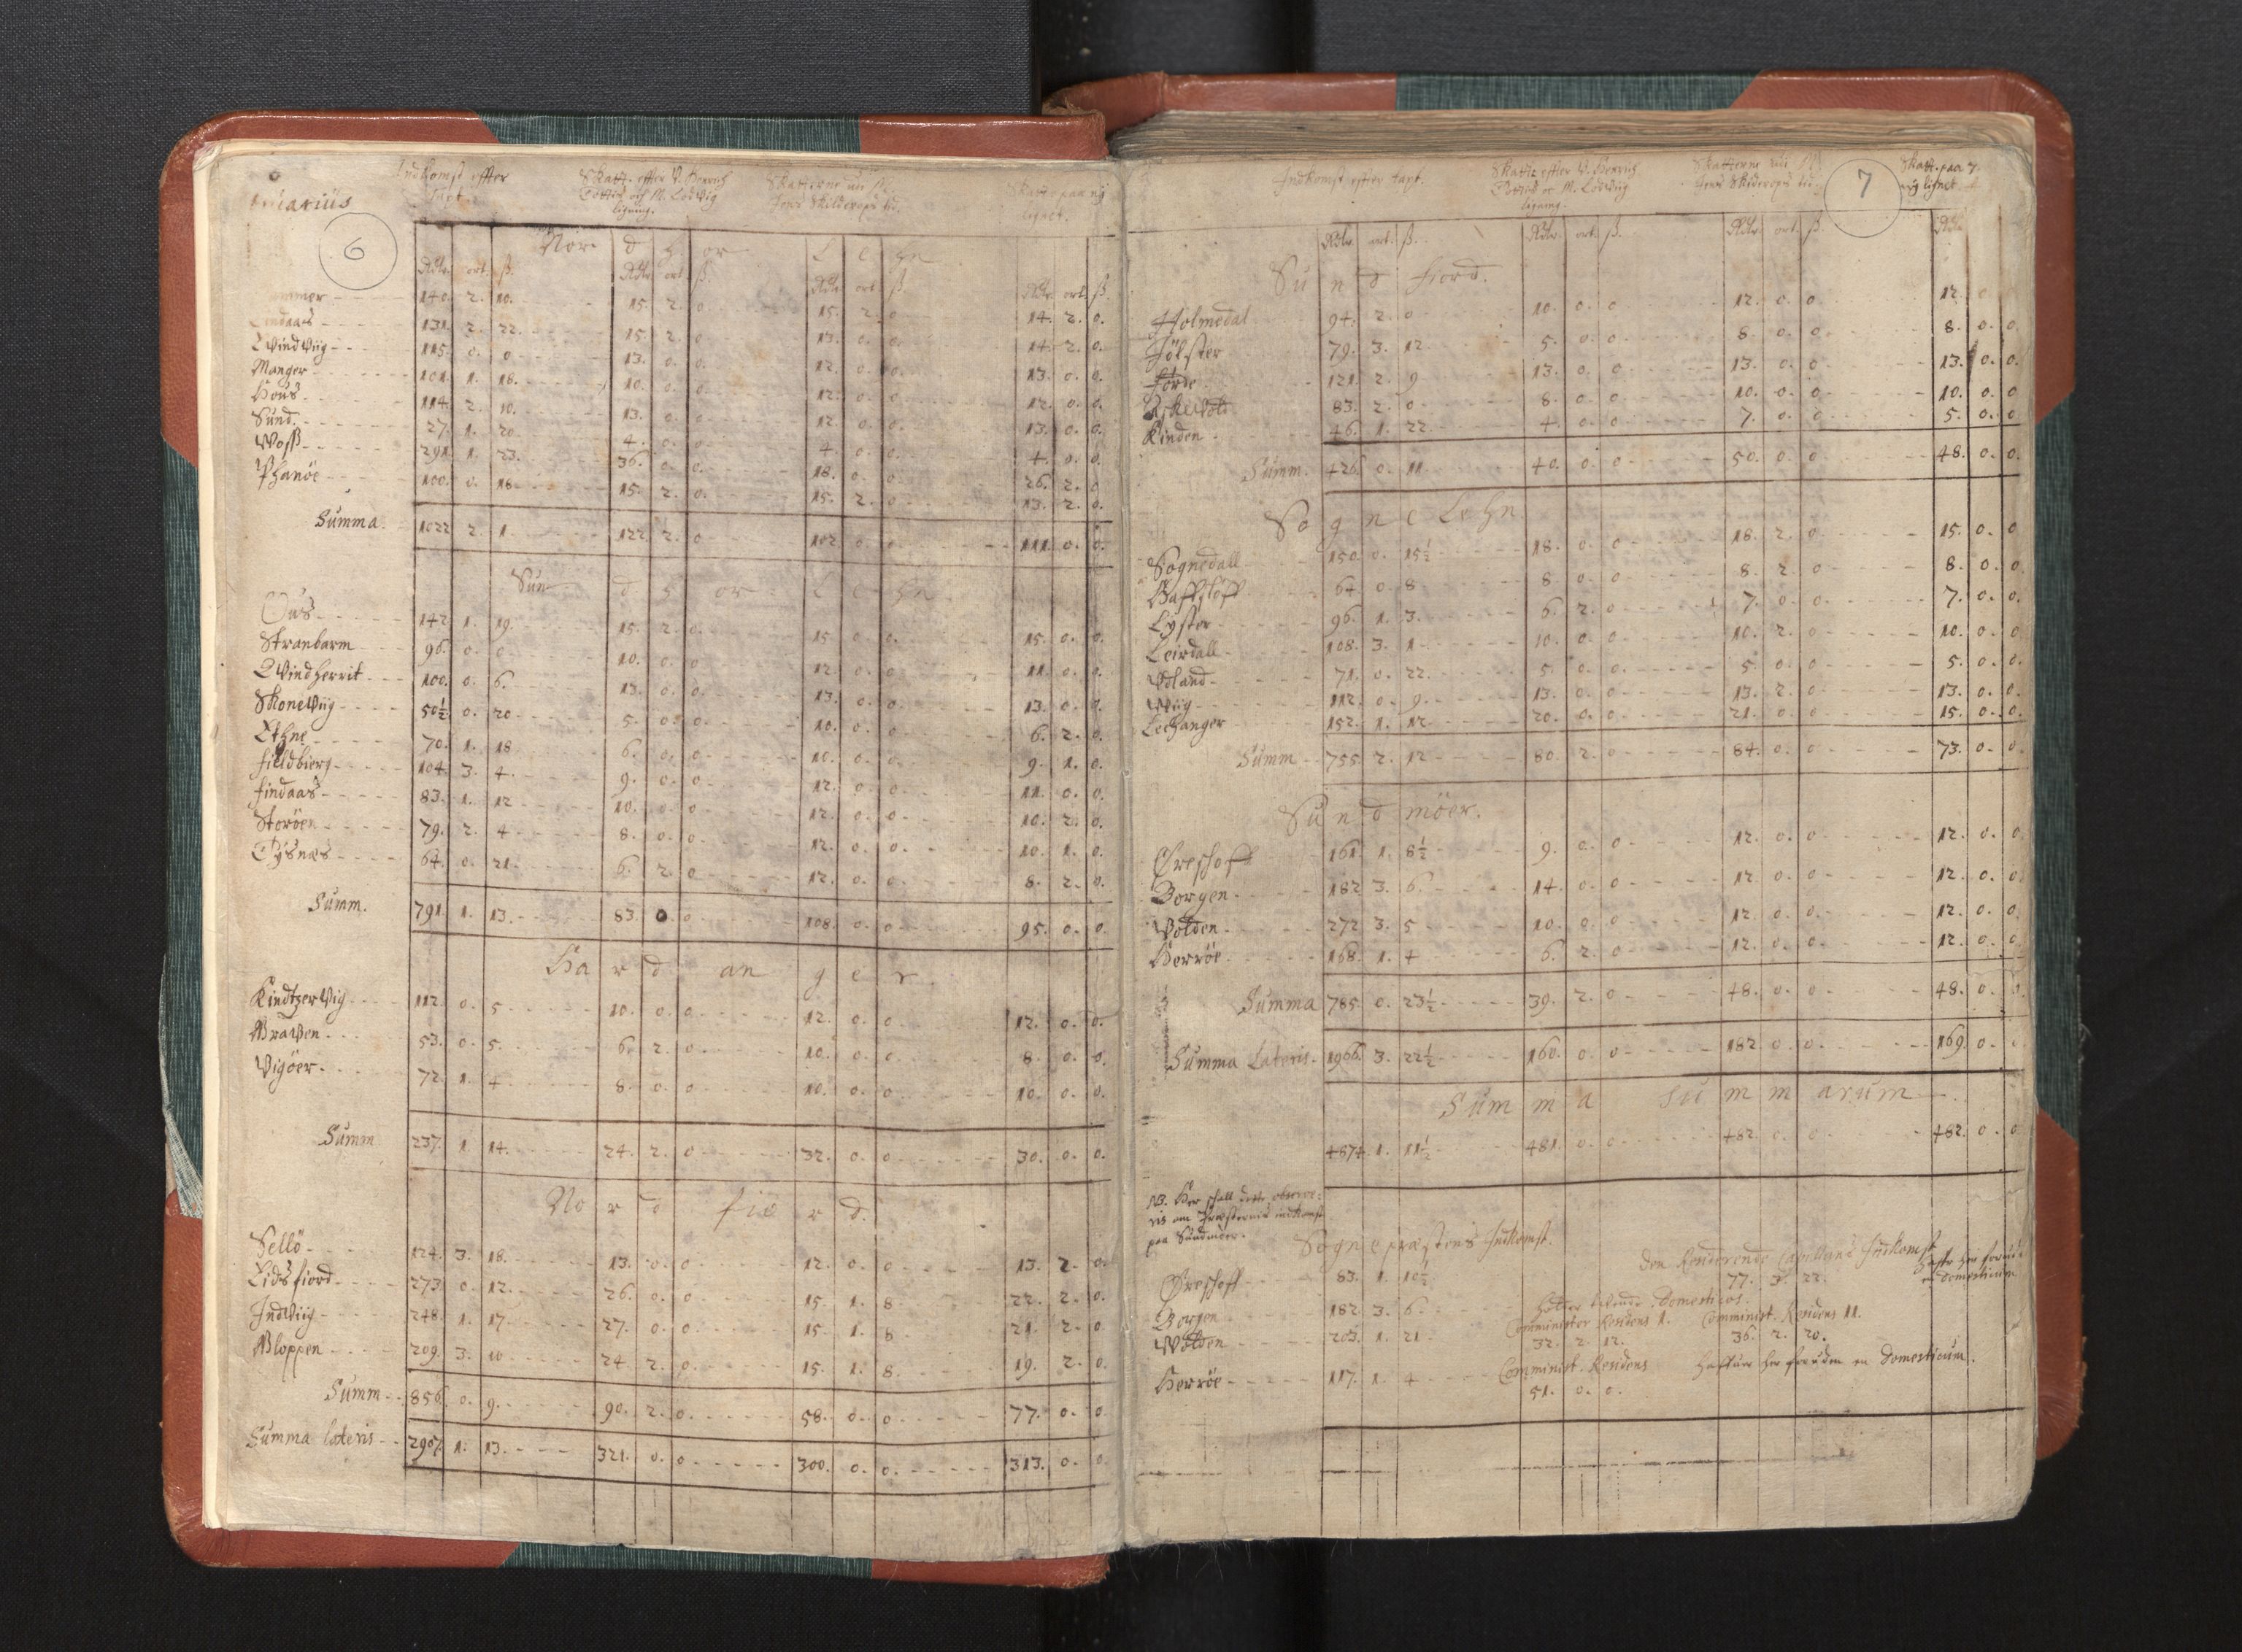 Indkomst effter Taxt.
Skatt. effter V. Henrich Tottis och M. Lodvig ligning.
Skatterne udi M. Jens Skilderops tid.
Skatt. paa ny lignet.
6
Nor d h or L e hn
Rdlr. ort. ß. Rdlr. ort. ß. Rdlr. ort. ß. Rdlr. ort. ß.
140. 2. 10. 15. 2. 0. 15. 2. 0. 14. 2. 0.
131. 2. 22. 15. 2. 0. 13. 0. 0. 14. 2. 0.
Evindviig 115. 0. 0. 13. 0. 0. 12. 0. 0. 13. 0. 0.
Manger 101. 1. 18. 10. 0. 0. 12. 0. 0. 12. 0. 0.
Hous 114. 2. 10. 13. 0. 0. 12. 0. 0. 13. 0. 0.
Sund. 27. 1. 20. 4. 0. 0. 4. 0. 0. 4. 0. 0.
Woss 291. 1. 23. 36. 0. 0. 18. 0. 0. 26. 2. 0.
Phanöe 100. 0. 18. 15. 2. 0. 15. 2. 0. 13. 2. 0.
Summa. 1022. 2. 1. 122. 2. 0. 102. 0. 0. 111. 0. 0.
Sun d h or L e hn.
Ous 142. 1. 19. 15. 2. 0. 15. 0. 0. 15. 0. 0.
Strandbarm 96. 0. 0. 10. 0. 0. 12. 0. 0. 11. 0. 0.
Qvindherrit 100. 0. 6. 13. 0. 0. 13. 0. 0. 13. 0. 0.
Skoneviig 50½. 0. 20. 5. 0. 0. 10. 0. 0. 6. 2. 0.
Ethne 70. 1. 18. 6. 0. 0. 10. 0. 0. 9. 1. 0.
Fieldbierg 104. 3. 4. 9. 0. 0. 12. 0. 0. 11. 0. 0.
Findaas 83. 1. 12. 10. 0. 0. 12. 0. 0. 10. 2. 0.
Storöen 79. 2. 4. 8. 0. 0. 12. 0. 0. 10. 1. 0.
Tysnæs 64. 0. 21. 6. 2. 0. 12. 0. 0. 8. 2. 0.
Summ. 791. 1. 13. 83. 0. 0. 108. 0. 0. 95. 0. 0.
Ha r d an g e r.
Kindtzervig 112. 0. 5. 10. 0. 0. 12. 0. 0. 12. 0. 0.
Graven 53. 0. 5. 6. 2. 0. 10. 0. 0. 8. 0. 0.
Vigöer 72. 1. 4. 8. 0. 0. 10. 0. 0. 10. 0. 0.
Summ 237. 1. 14. 24. 2. 0. 32. 0. 0. 30. 0. 0.
No r d fio r d.
Sellö 124. 3. 18. 13. 0. 0. 12. 0. 0. 13. 2. 0.
Eids fiord 273. 0. 12. 26. 0. 0. 15. 1. 8. 22. 2. 0.
Indviig 248. 1. 17. 27. 0. 0. 15. 1. 8. 21. 2. 0.
Gloppen 209. 3. 10. 24. 2. 0. 15. 1. 8. 19. 2. 0.
Summ 856. 0. 9. 90. 2. 0. 58. 0. 0. 77. 0. 0.
Summa lateris 2907. 1. 13. 321. 0. 0. 300. 0. 0. 313. 0. 0.
Indkomst efter taxt.
Skatte effter V. Henrich Tottis oc M. Lodviig ligning.
Skatterne udi M. Jens Skilderops tid.
Skatt. paa ny lignet.
7
Rdlr. ort. ß. Rdlr. ort. ß. Rdlr. ort. ß. Rdlr.
Su n d fiord.
Holmedal 94. 2. 0. 10. 0. 0. 12. 0. 0. 12. 0.
Jölster 79. 3. 12. 5. 0. 0. 8. 0. 0. 8. 0. 0.
Förde 121. 2. 9. 13. 0. 0. 13. 0. 0. 13. 0. 0.
Askevold 83. 2. 0. 8. 0. 0. 10. 0. 0. 10. 0. 0.
Kinden 46. 1. 22. 4. 0. 0. 7. 0. 0. 5. 0. 0.
Summ. 426. 0. 11. 40. 0. 0. 50. 0. 0. 48. 0. 0.
So g n e Lehn
Sogndall 150. 0. 15½ 18. 0. 0. 18. 2. 0. 15. 0. 0.
Haffsloff 64. 0. 8. 8. 0. 0. 8. 2. 0. 8. 0. 0.
Lyster 96. 1. 3. 6. 2. 0. 7. 0. 0. 7. 0. 0.
Leirdall 108. 3. 1. 10. 0. 0. 10. 2. 0. 10. 0. 0.
Urland 71. 0. 22. 5. 0. 0. 5. 0. 0. 5. 0. 0.
Wiig 112. 0. 9. 13. 0. 0. 13. 2. 0. 13. 0. 0.
Lechanger 152. 1. 12. 20. 0. 0. 21. 0. 0. 15. 0. 0.
Summ 755. 2. 12. 80. 2. 0. 84. 0. 0. 73. 0. 0.
Su n d möer.
Øreshoff 161. 1. 8½ 9. 0. 0. 12. 0. 0. 12. 0. 0.
Borgen 182. 3. 6. 14. 0. 0. 12. 0. 0. 12. 0. 0.
Volden 272. 3. 5. 10. 0. 0. 12. 0. 0. 12. 0. 0.
Herröe 168. 1. 4. 6. 2. 0. 12. 0. 0. 12. 0. 0.
Summa 785. 0. 23½ 39. 2. 0. 48. 0. 0. 48. 0.
Summa Lateris 1966. 3. 22½ 160. 0. 0. 182. 0. 0. 169. 0.
Sum m a su m m arum
4874. 1. 11½ 481. 0. 0. 482. 0. 0. 482. 0. 0.
NB. Her skall dette observe-
ris om Præsternis indkomst
paa Sundmöer.
Sogne præstens Indkomst.
Den Residerende Capellans Indkomst
Øreshoff 83. 1. 10½ 77. 3. 22.
Borgen 182. 3. 6. Domesticos.
Comminister Residens 1. Comminist. Residens 11.
Wolden 203. 1. 21. 32. 2. 12. 36. 2. 20.
Comminist. Residens
Herröe 117. 1. 4. haffuer her foruden en Domesticum.
51. 0. 0.